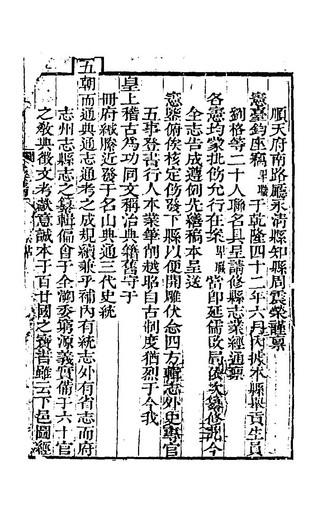 順天府南路廳永清縣知縣周震榮謹稟
憲臺鈞座稱卑職于乾隆四十二年六月內據本縣舉貢生員
劉格等二十人聯名具呈請修縣志業經通稟
各憲均蒙批飭允行在案卑職當卽延儒設局依次纂修訖今
全志告成遵例先繕稿本呈送
憲鑒俯俟核定飭發下縣以便開雕伏念四方志外史專官
五事登書行人本業筆削越略自古制度猶烈于今我
皇上稽古爲功同文稱治典籍舊守于
冊府緘縢近發于名山典通三代史統
五朝而通典通志通考之成規續兼乎補內有統志外有省志而府
志州志縣志之纂輯偏會于全委窮源義實備于六十官
之敎典徵文考獻意誠本于百廿國之寶書雖云下邑圖經